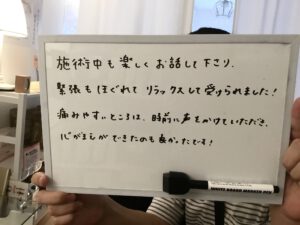 施術中も楽しくお話して下さり、
緊張もほぐれてリラックスして受けられました!
痛みやすいところは、時前に声をかけていただき、
心がまえができたのも良かったです!
WHITE BOARD MARKER PEN